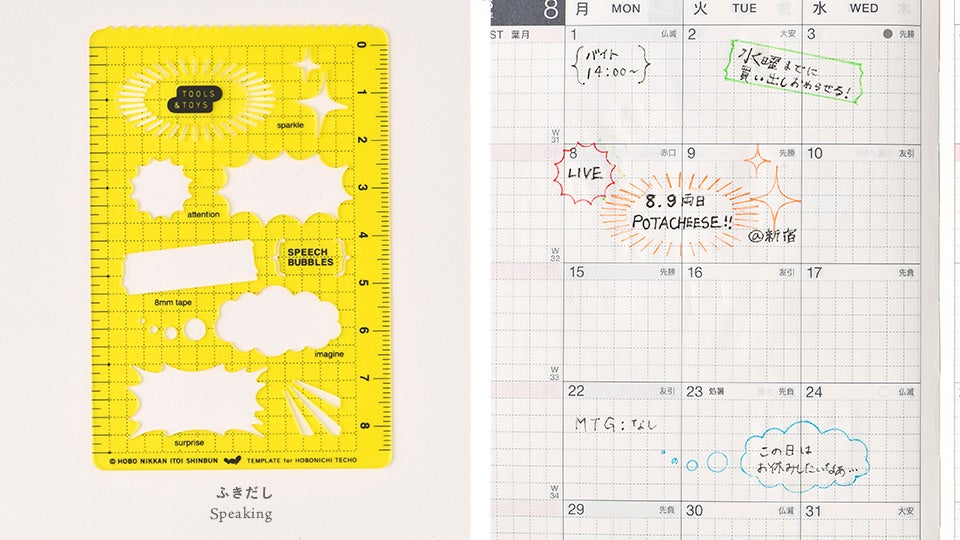 0
1
2
3
4
5
6
7
8
TOOLS
& TOYS
sparkle
attention
SPEECH
BUBBLES
8mm tape
imagine
surprise
© HOBO NIKKAN ITOI SHINBUN
TEMPLATE for HOBONICHI TECHO
ふきだし
Speaking
8
月 MON
火 TUE
水 WED
ST 葉月
1 仏滅
バイト
14:00~
2 大安
3 先勝
水曜までに
買い出しおわらせる!
W
31
8 赤口
LIVE
9 先勝
8.9両日
POTACHEESE!!
@新宿
10 友引
W
32
15 先勝
16 友引
17 先負
W
33
22 友引
23 処暑 先負
24 仏滅
MTG:なし
この日は
お休みしたいなあ…
W
34
29 先負
30 仏滅
31 大安